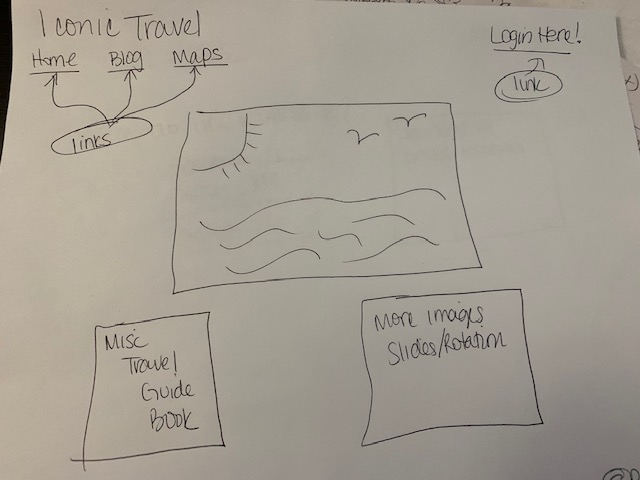 Iconic Travel
Home Blog Maps
Login Here!
links
link
Misc
Travel
Guide
Book
More images
Slides/Rotation